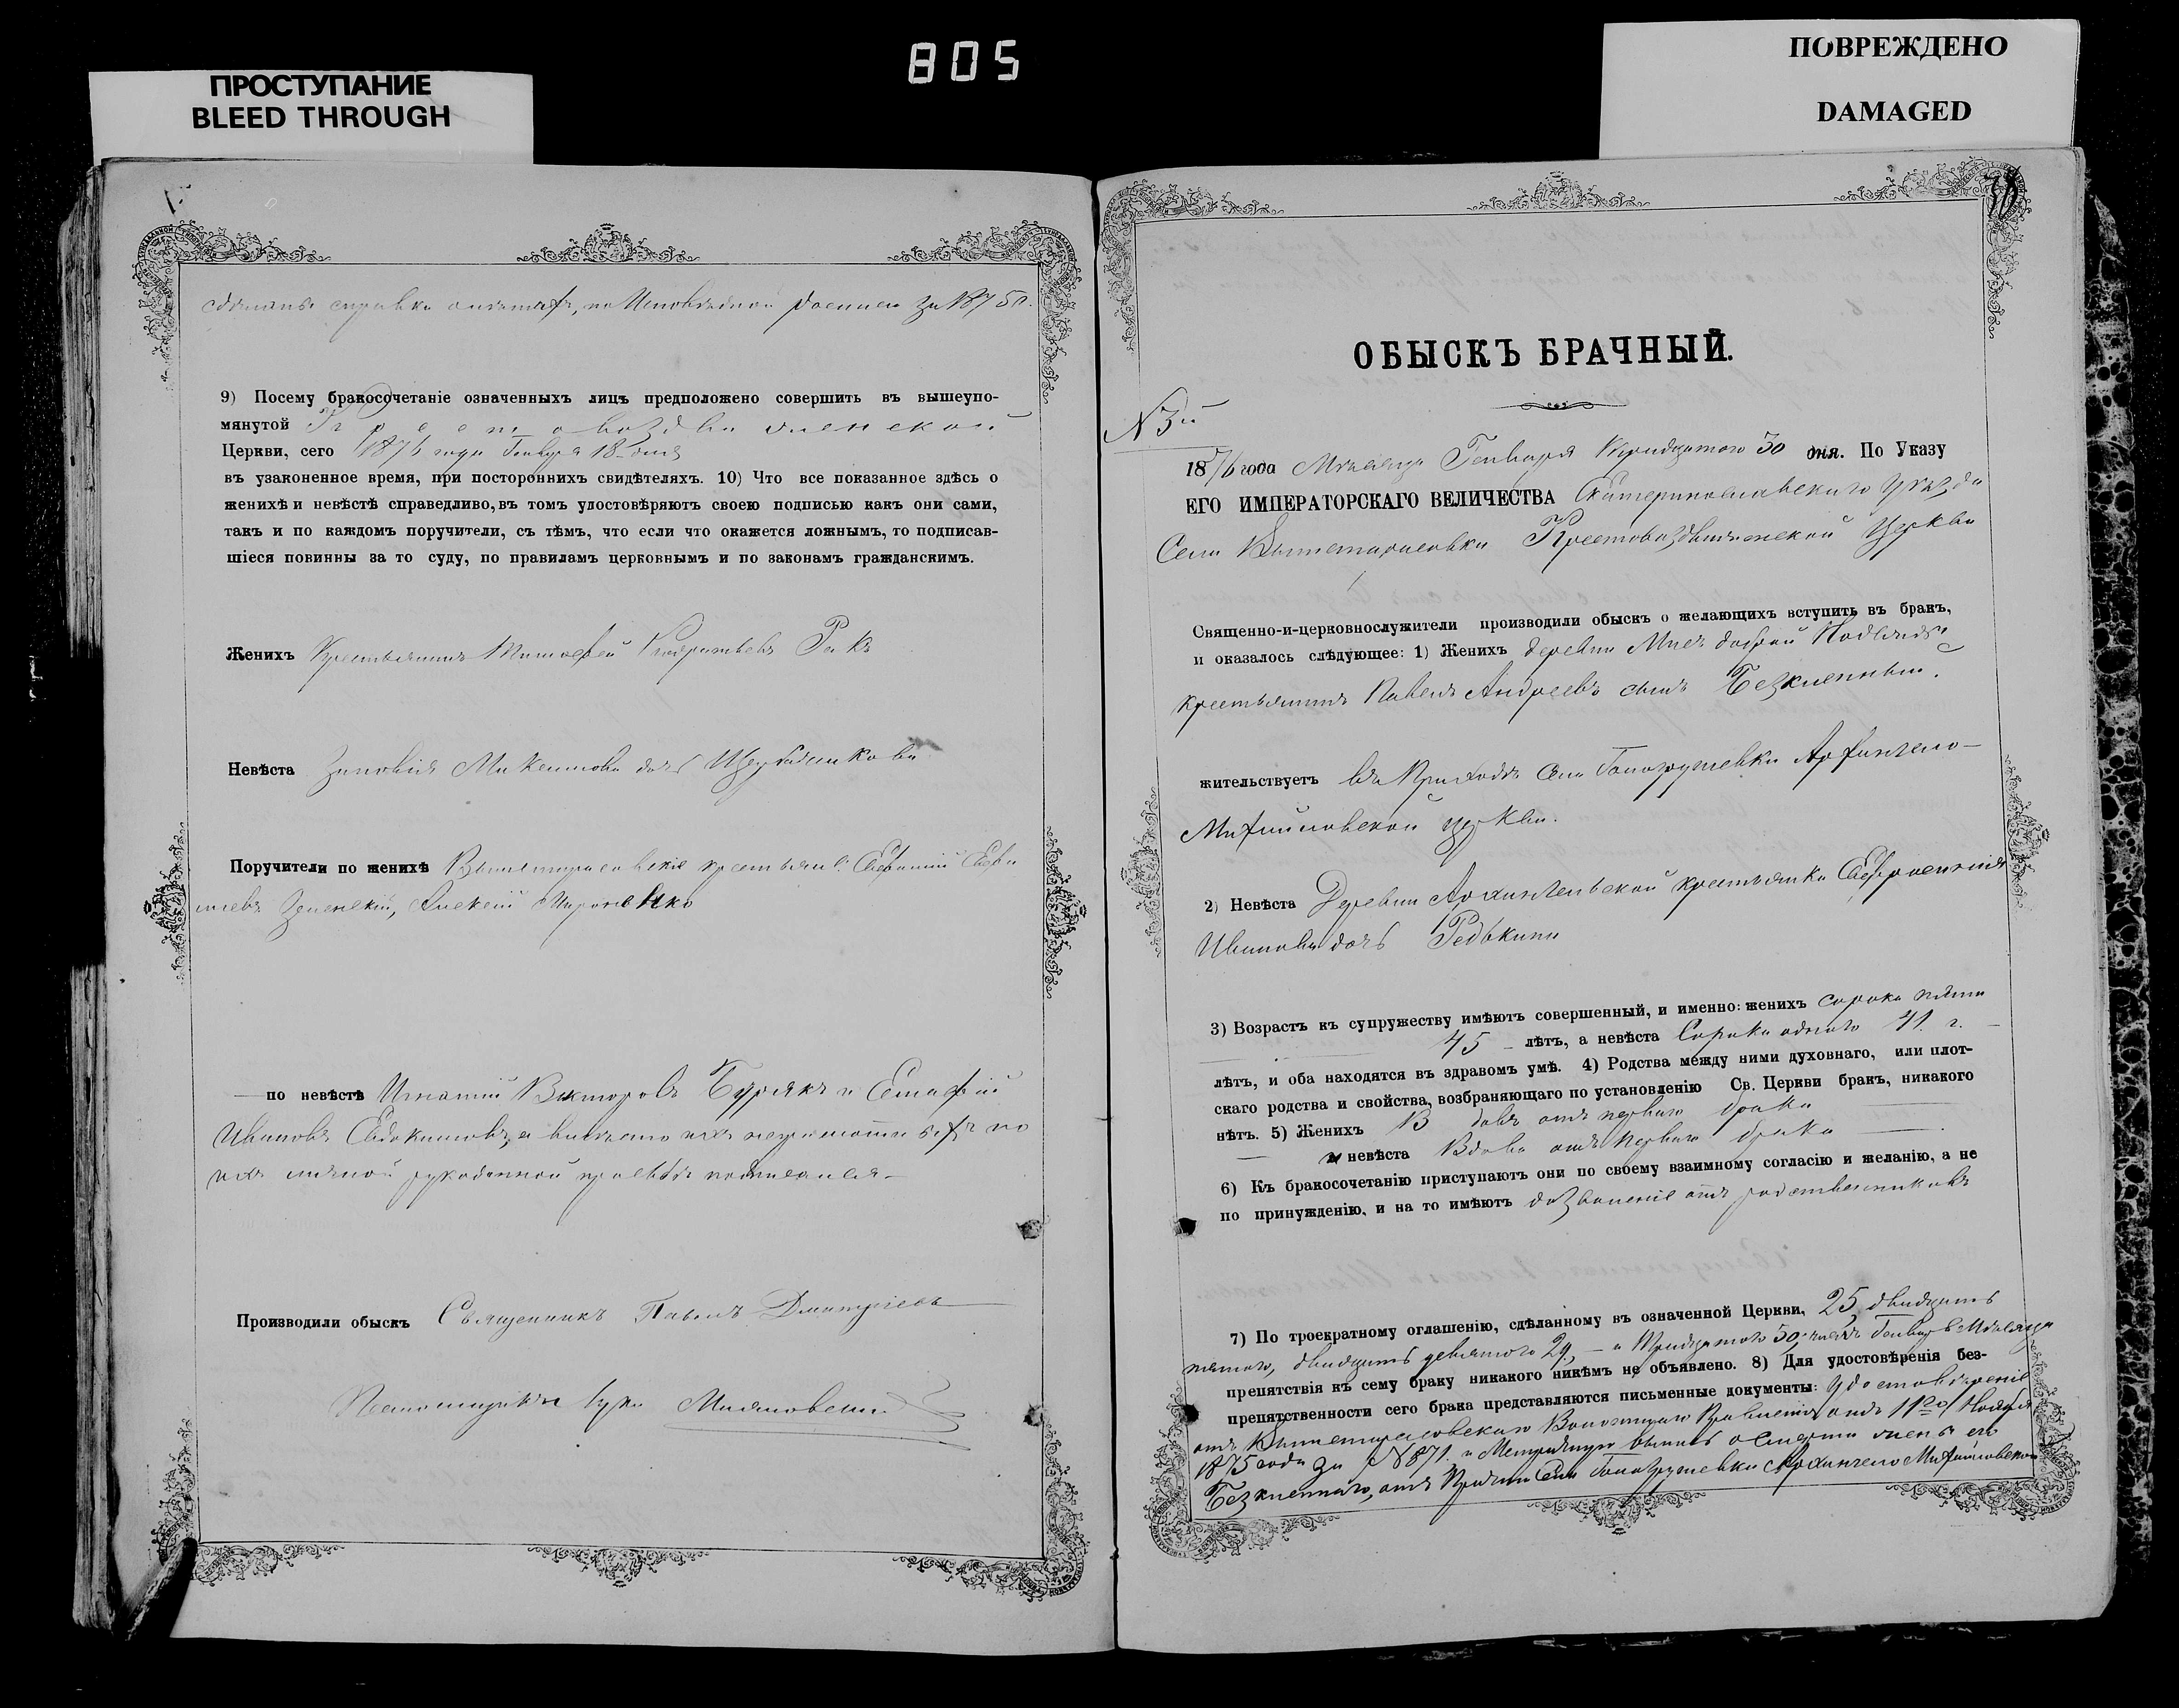 805
ПРОСТУПАНИЕ
BLEED THROUGH
ПОВРЕЖДЕНО
DAMAGED
справки по Исповѣдной росписи за 1875 г.
9) Посему бракосочетаніе означенныхъ лицъ предположено совершить въ вышеупо-
мянутой Крестовоздвиженской
Церкви, сего 1876 года Генваря 18 дня
въ узаконенное время, при постороннихъ свидѣтеляхъ. 10) Что все показанное здѣсь о
женихѣ и невѣстѣ справедливо, въ томъ удостовѣряютъ своею подписью какъ они сами,
такъ и по каждомъ поручители, съ тѣмъ, что если что окажется ложнымъ, то подписав-
шіеся повинны за то суду, по правиламъ церковнымъ и по законамъ гражданскимъ.
Женихъ Крестьянинъ Тимофей Кондратьевъ Ракъ
Невѣста Зиновія Максимова дочь
Поручители по женихѣ крестьяне Евфимій
Алексій Мироненко
по невѣстѣ Игнатій Викторовъ Бурякъ и
Ивановъ Евдокимовъ, а вмѣсто ихъ неграмотныхъ по
ихъ личной рукоданной прозьбѣ подписался
Производили обыскъ Священникъ Павелъ Дмитріевъ
ОБЫСКЪ БРАЧНЫЙ.
N 3й
1876 года Мѣсяца Генваря тридцатого 30 дня. По Указу
ЕГО ИМПЕРАТОРСКАГО ВЕЛИЧЕСТВА Екатеринославскаго Уѣзда
Села Вышетарасовки Крестовоздвиженской Церкви
Священно-и-церковнослужители производили обыскъ о желающихъ вступить въ бракъ,
и оказалось слѣдующее: 1) Женихъ деревни
крестьянинъ Павелъ Андреевъ сынъ Безкленный
жительствуетъ въ Приходѣ Села Гологрушевки Архангело-
Михайловской церкви.
2) Невѣста Деревни Архангельской крестьянка Евфросинія
Иванова дочь Редькина
3) Возрастъ къ супружеству имѣютъ совершенный, и именно: женихъ сорока пяти
45 лѣтъ, а невѣста Сорока одного 41. г.
лѣтъ, и оба находятся въ здравомъ умѣ. 4) Родства между ними духовнаго, или плот-
скаго родства и свойства, возбраняющаго по установленію Св. Церкви бракъ, никакого
нѣтъ. 5) Женихъ Вдовъ отъ перваго брака
и невѣста Вдова отъ перваго брака
6) Къ бракосочетанію приступаютъ они по своему взаимному согласію и желанію, а не
по принужденію, и на то имѣютъ дозволеніе отъ родственниковъ
7) По троекратному оглашенію, сдѣланному въ означенной Церкви, 25, двадцать
пятого, двадцать девятого 29, и тридцатого 30, числъ Генваря Мѣсяца
препятствія къ сему браку никакого никѣмъ не объявлено. 8) Для удостовѣренія без-
препятственности сего брака представляются письменные документы: Удостовѣреніе
отъ Вышетарасовскаго Волостнаго Правленія отъ 11го Ноября
1875 года за N 871. и Метрическую выпись о смерти жены его
Безкленнаго, отъ Причта Села Гологрушевки Архангело Михайловской